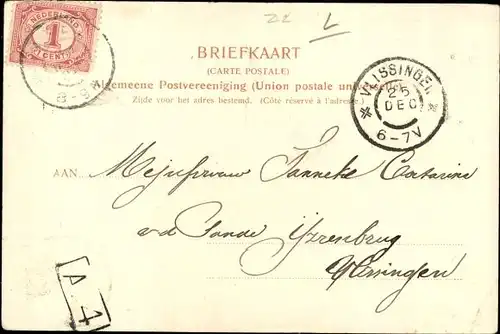 NEDERLAND
1
CENT
BRIEFKAART
(CARTE POSTALE)
Algemeene Postvereeniging (Union postale universelle)
Zijde voor het adres bestemd. (Côté réservé à l'adresse.)
VLISSINGEN
25
DEC
6-7V
AAN Mejufvrouw Janneke Catarina
v.d. Sande IJzrenbrug
Vlissingen
A 4